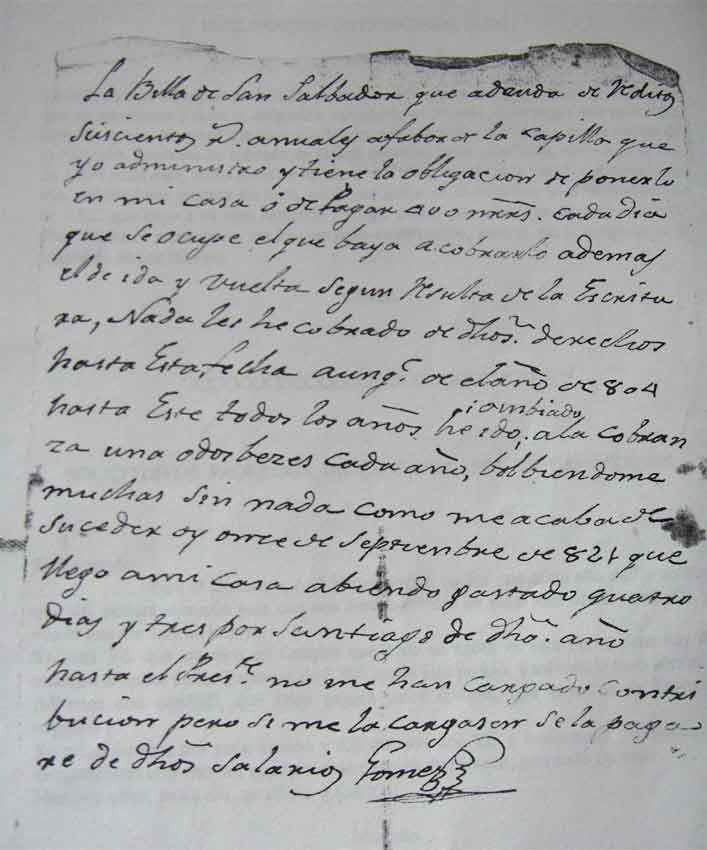 La Billa de San Salbador que adeuda de Reditos
suscientos Rs. anuales afabor de la Capilla que
yo administro y tiene la obligacion de ponerlo
en mi casa ó de Pagar 400 mrs. cada dia
que se ocupe el que baya a cobrarlo ademas
el de ida y vuelta segun Resulta de la Escritu
ra, Nada les he cobrado de dhos. derechos
hasta Esta fecha aunq.e de el año de 804
hasta Este todos los años he ido, a la cobran
i ombiado
za una o dos bezes cada año, bolbiendome
muchas sin nada como me acaba de
suceder oy once de Septienbre de 821 que
llego a mi casa abiendo gastado quatro
dias y tres por Santiago de dho. año
hasta el Pres.te no me han cargado contri
bucion pero si me la cargasen se la paga
re de dhos salarios Gomez